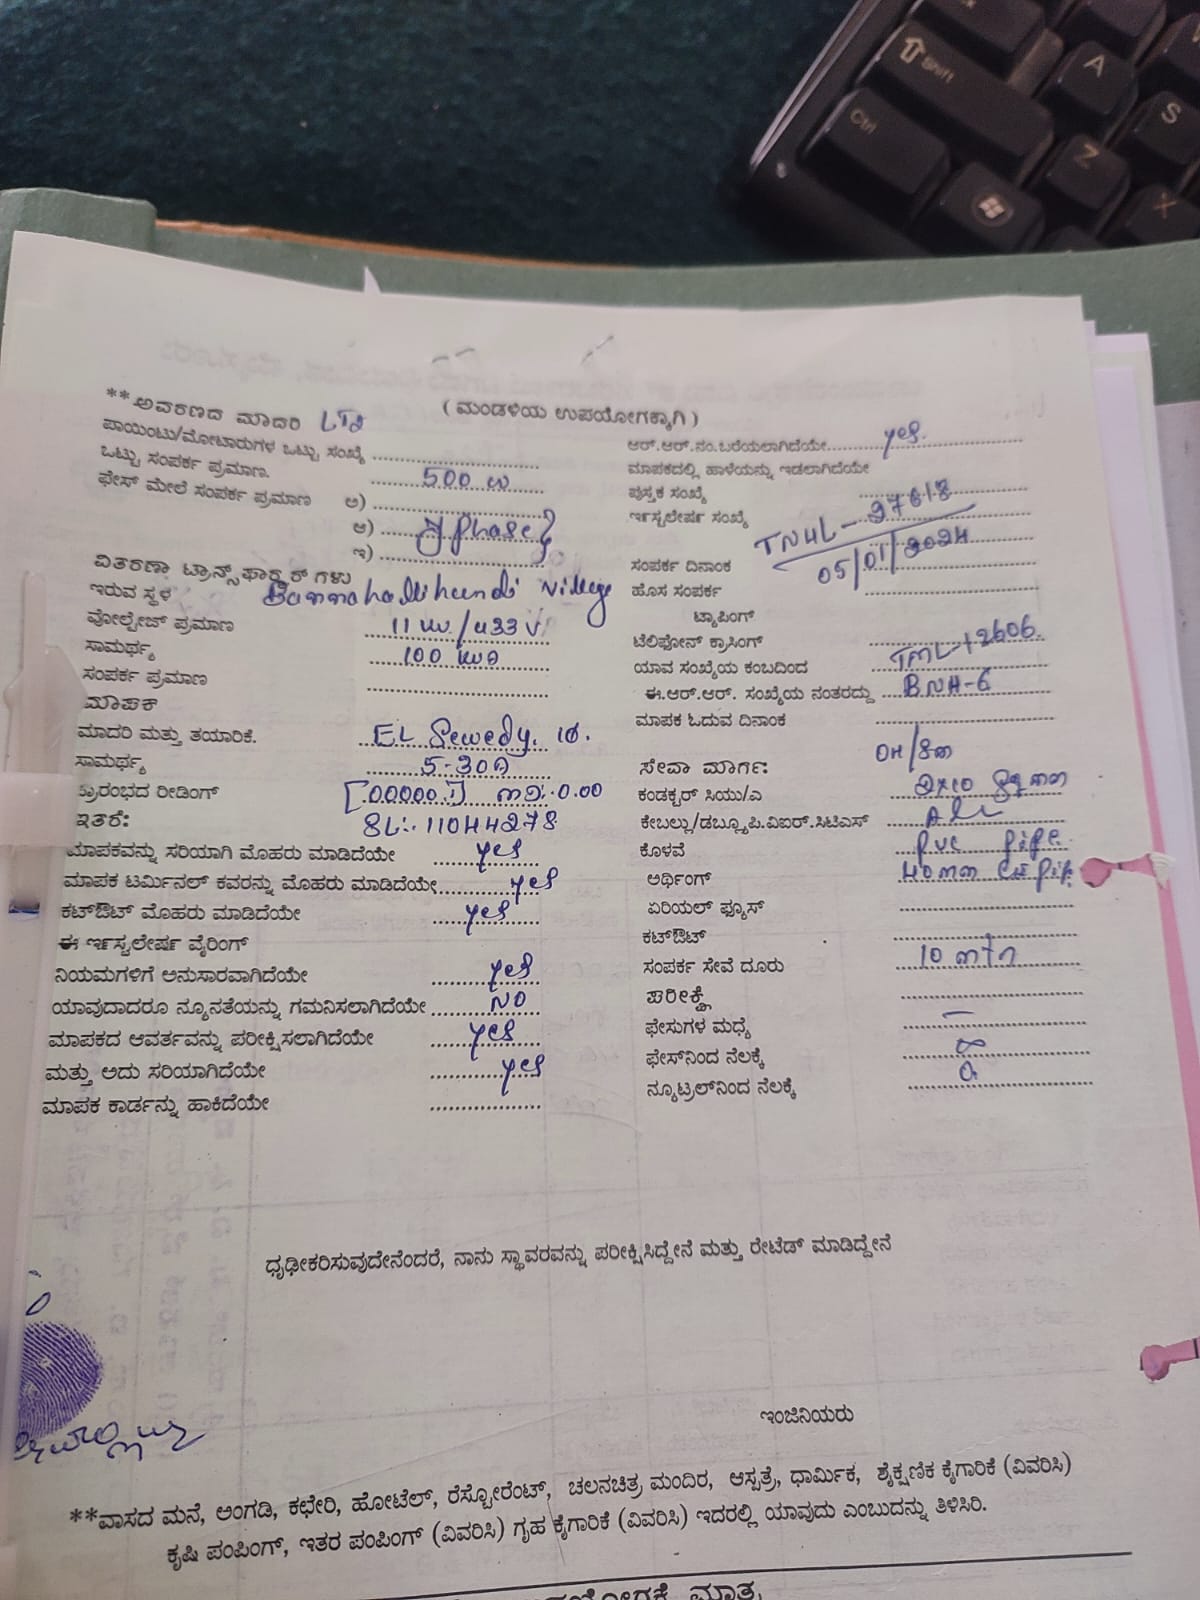 (ಮಂಡಳಿಯ ಉಪಯೋಗಕ್ಕಾಗಿ)
**ಆವರಣದ ಮಾದರಿ LT2
ಪಾಯಿಂಟು/ಮೋಟಾರುಗಳ ಒಟ್ಟು ಸಂಖ್ಯೆ
ಒಟ್ಟು ಸಂಪರ್ಕ ಪ್ರಮಾಣ. 500 W
ಫೇಸ್ ಮೇಲೆ ಸಂಪರ್ಕ ಪ್ರಮಾಣ ಅ)
ಆ) phase
ಇ)
ವಿತರಣಾ ಟ್ರಾನ್ಸ್‌ಫಾರ್ಮರ್‌ಗಳು
ಇರುವ ಸ್ಥಳ Bammahallihundi Village
ವೋಲ್ಟೇಜ್ ಪ್ರಮಾಣ 11 KV/433 V
ಸಾಮರ್ಥ್ಯ 100 KVA
ಸಂಪರ್ಕ ಪ್ರಮಾಣ
ಮಾಪಕ
ಮಾದರಿ ಮತ್ತು ತಯಾರಿಕೆ. EL Sewedy. 1Φ.
ಸಾಮರ್ಥ್ಯ 5-30A
ಪ್ರಾರಂಭದ ರೀಡಿಂಗ್ [00000.1] MD:0.00
ಇತರೆ: SL:.11044278
ಮಾಪಕವನ್ನು ಸರಿಯಾಗಿ ಮೊಹರು ಮಾಡಿದೆಯೇ yes
ಮಾಪಕ ಟರ್ಮಿನಲ್ ಕವರನ್ನು ಮೊಹರು ಮಾಡಿದೆಯೇ yes
ಕಟ್‌ಔಟ್ ಮೊಹರು ಮಾಡಿದೆಯೇ yes
ಈ ಇನ್‌ಸ್ಟಲೇಷನ್ ವೈರಿಂಗ್
ನಿಯಮಗಳಿಗೆ ಅನುಸಾರವಾಗಿದೆಯೇ yes
ಯಾವುದಾದರೂ ನ್ಯೂನತೆಯನ್ನು ಗಮನಿಸಲಾಗಿದೆಯೇ NO
ಮಾಪಕದ ಆವರ್ತವನ್ನು ಪರೀಕ್ಷಿಸಲಾಗಿದೆಯೇ yes
ಮತ್ತು ಅದು ಸರಿಯಾಗಿದೆಯೇ yes
ಮಾಪಕ ಕಾರ್ಡನ್ನು ಹಾಕಿದೆಯೇ
ಆರ್.ಆರ್.ನಂ.ಬರೆಯಲಾಗಿದೆಯೇ yes.
ಮಾಪಕದಲ್ಲಿ ಹಾಳೆಯನ್ನು ಇಡಲಾಗಿದೆಯೇ
ಪುಸ್ತಕ ಸಂಖ್ಯೆ
ಇನ್‌ಸ್ಟಲೇಷನ್ ಸಂಖ್ಯೆ TN4L-27618
ಸಂಪರ್ಕ ದಿನಾಂಕ 05/01/2024
ಹೊಸ ಸಂಪರ್ಕ
ಟ್ಯಾಪಿಂಗ್
ಟೆಲಿಫೋನ್ ಕ್ರಾಸಿಂಗ್
ಯಾವ ಸಂಖ್ಯೆಯ ಕಂಬದಿಂದ
ಈ.ಆರ್.ಆರ್. ಸಂಖ್ಯೆಯ ನಂತರದ್ದು BNH-6
ಮಾಪಕ ಓದುವ ದಿನಾಂಕ
ಸೇವಾ ಮಾರ್ಗ:
ಕಂಡಕ್ಟರ್ ಸಿಯು/ಎ
ಕೇಬಲ್ಲು/ಡಬ್ಲ್ಯೂಪಿ.ವಿಐಆರ್.ಸಿಟಿಎಸ್
ಕೊಳವೆ PVC pipe
ಅರ್ಥಿಂಗ್ 40mm
ಏರಿಯಲ್ ಫ್ಯೂಸ್
ಕಟ್‌ಔಟ್
ಸಂಪರ್ಕ ಸೇವೆ ದೂರು 10 mtr
ಪರೀಕ್ಷೆ
ಫೇಸುಗಳ ಮಧ್ಯೆ –
ಫೇಸ್‌ನಿಂದ ನೆಲಕ್ಕೆ ∞
ನ್ಯೂಟ್ರಲ್‌ನಿಂದ ನೆಲಕ್ಕೆ
ಧೃಢೀಕರಿಸುವುದೇನೆಂದರೆ, ನಾನು ಸ್ಥಾವರವನ್ನು ಪರೀಕ್ಷಿಸಿದ್ದೇನೆ ಮತ್ತು ರೇಟೆಡ್ ಮಾಡಿದ್ದೇನೆ
ಇಂಜಿನಿಯರು
**ವಾಸದ ಮನೆ, ಅಂಗಡಿ, ಕಛೇರಿ, ಹೋಟೆಲ್, ರೆಸ್ಟೋರೆಂಟ್, ಚಲನಚಿತ್ರ ಮಂದಿರ, ಆಸ್ಪತ್ರೆ, ಧಾರ್ಮಿಕ, ಶೈಕ್ಷಣಿಕ ಕೈಗಾರಿಕೆ (ವಿವರಿಸಿ)
ಕೃಷಿ ಪಂಪಿಂಗ್, ಇತರ ಪಂಪಿಂಗ್ (ವಿವರಿಸಿ) ಗೃಹ ಕೈಗಾರಿಕೆ (ವಿವರಿಸಿ) ಇದರಲ್ಲಿ ಯಾವುದು ಎಂಬುದನ್ನು ತಿಳಿಸಿರಿ.
ಮಾತ್ರ
Shift
Ctrl
A
S
Z
X